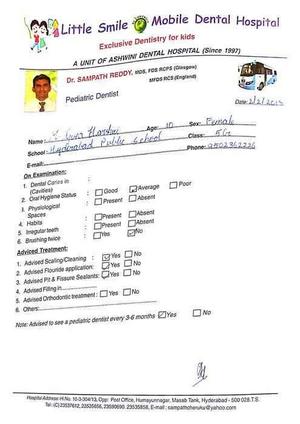 Little Smile Mobile Dental Hospital
Exclusive Dentistry for kids
A UNIT OF ASHWINI DENTAL HOSPITAL (Since 1997)
Dr. SAMPATH REDDY, MDS, FDS RCPS (Glasgow)
MFDS RCS (England)
Pediatric Dentist
Date: 2/2/2013
Name: Age: 10 Sex: Female
School: Hyderabad Public School Class:
E-mail: Phone:
On Examination:
1. Dental Caries in : (Cavities)
2. Oral Hygiene Status : Good Average Poor
3. Physiological Spaces : Present Absent
4. Habits : Present Absent
5. Irregular teeth : Present Absent
6. Brushing twice : Yes No
Adviced Treatment:
1. Advised Scaling/Cleaning : Yes No
2. Advised Flouride application: Yes No
3. Advised Pit & Fissure Sealants: Yes No
4. Advised Filling in
5. Advised Orthodontic treatment : Yes No
6. Others:
Note: Advised to see a pediatric dentist every 3-6 months Yes No
Hospital Address: H.No. 10-3-304/13, Opp: Post Office, Humayunnagar, Masab Tank, Hyderabad - 500 028.T.S.